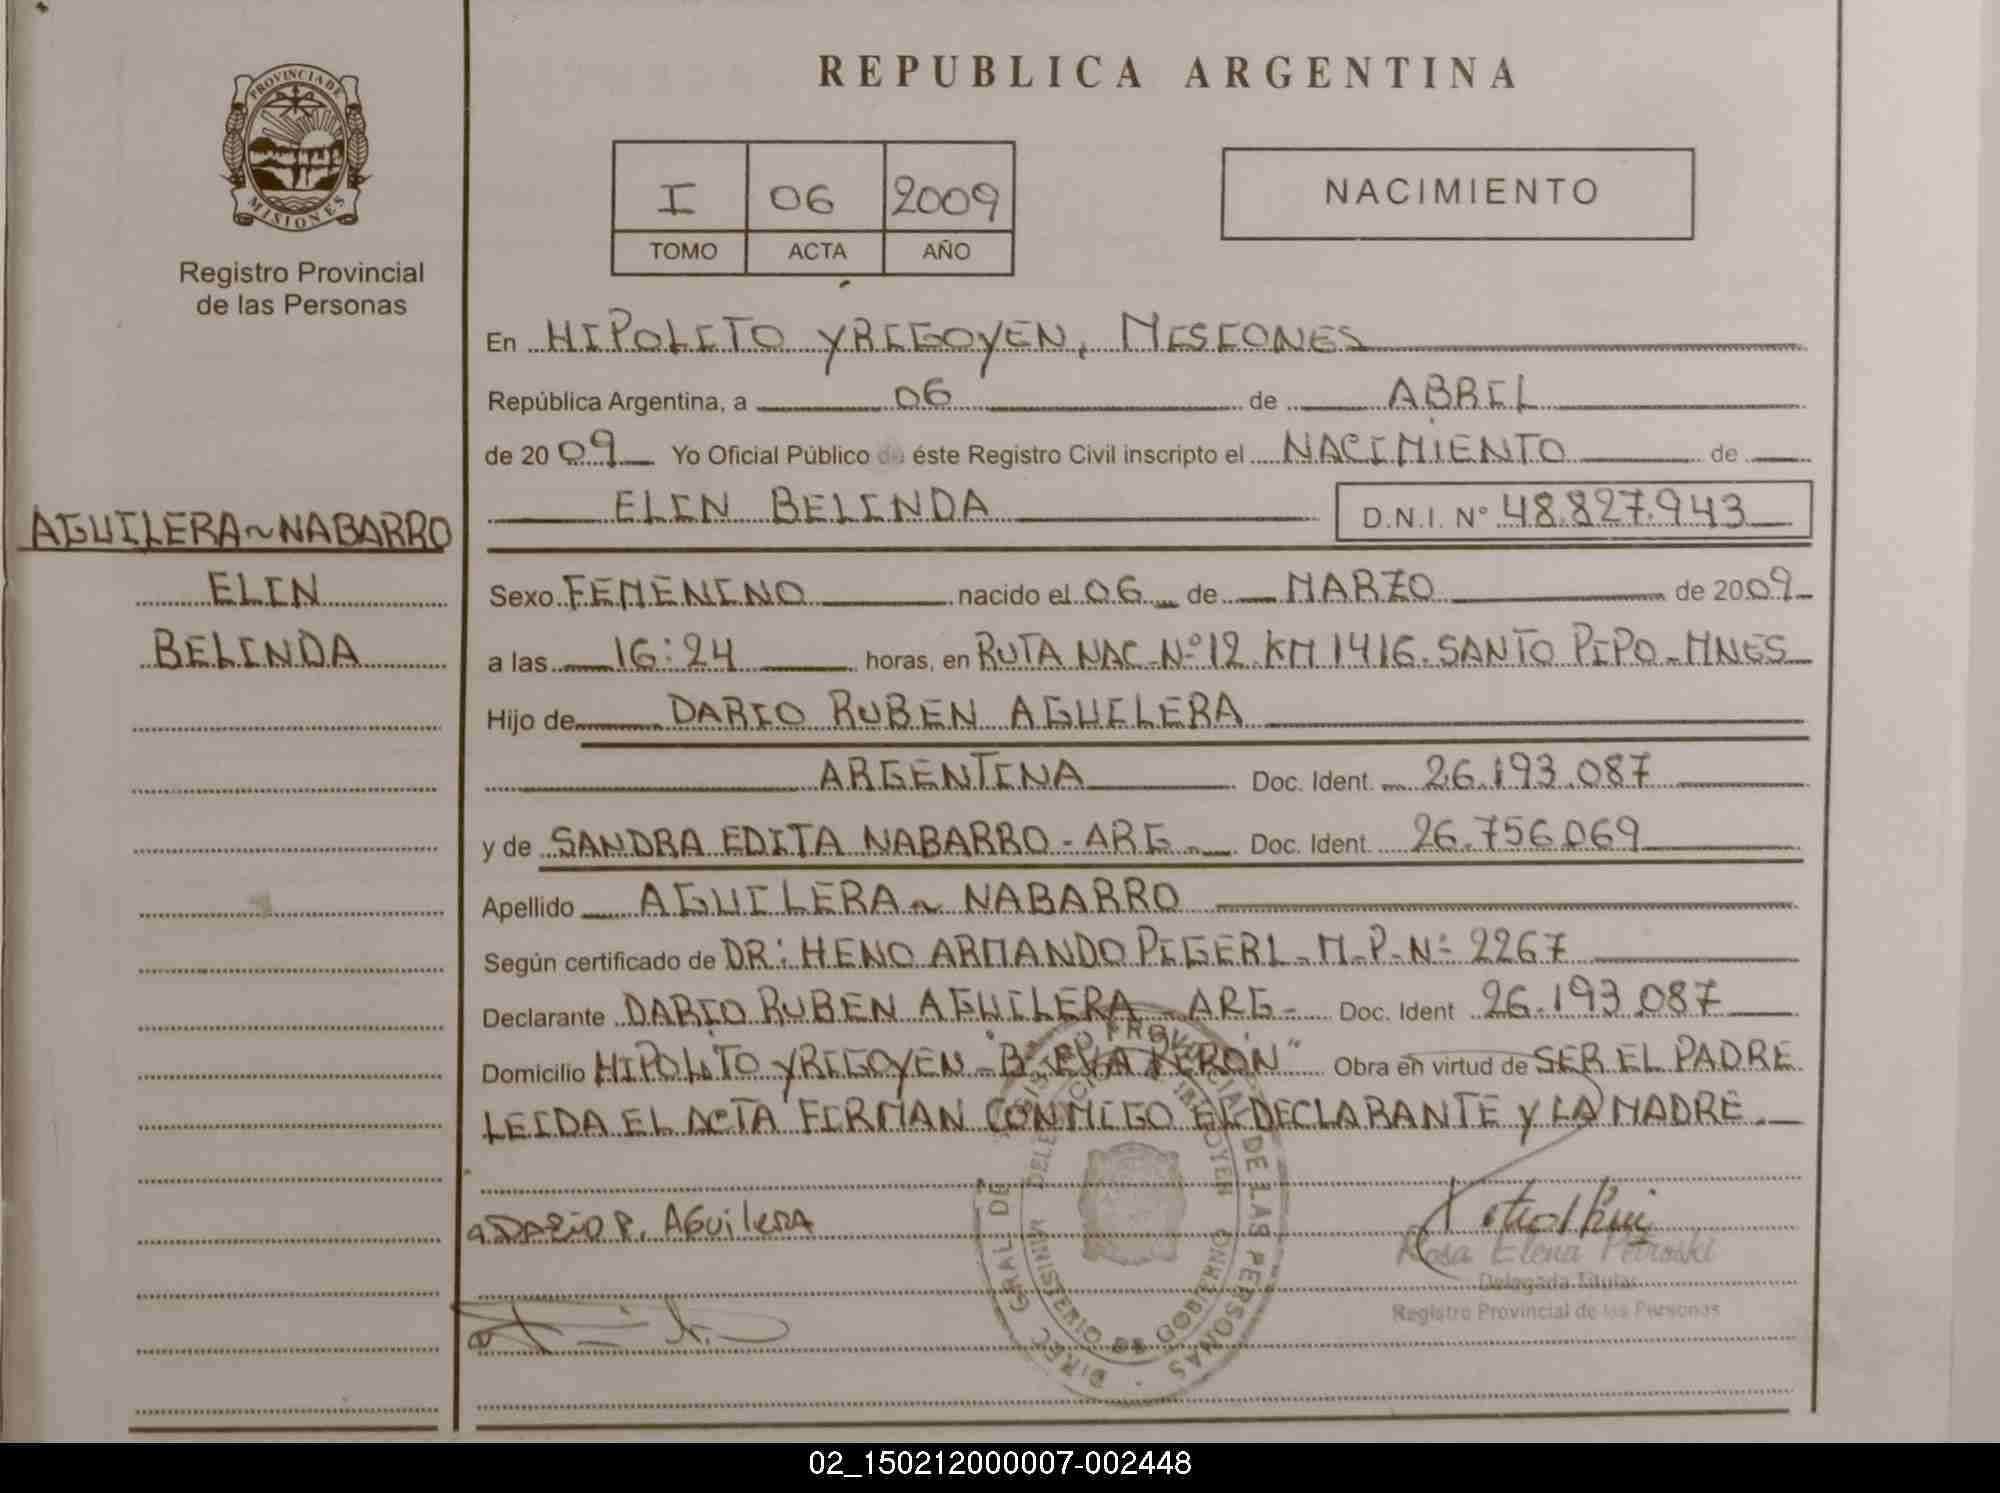 REPUBLICA ARGENTINA
PROVINCIA DE
MISIONES
Registro Provincial
de las Personas
I 06 2009
TOMO ACTA AÑO
NACIMIENTO
En HIPOLITO YRIGOYEN, MISIONES
República Argentina, a 06 de ABRIL
de 2009 Yo Oficial Público de éste Registro Civil inscripto el NACIMIENTO de
ELIN BELINDA D.N.I. Nº 48.827.943
AGUILERA~NABARRO
ELIN
BELINDA
Sexo FEMENINO nacido el 06 de MARZO de 2009
a las 16:24 horas, en RUTA NAC-Nº12 KM 1416-SANTO PIPO-MNES
Hijo de DARIO RUBEN AGUILERA
ARGENTINA Doc. Ident. 26.193.087
y de SANDRA EDITA NABARRO-ARG- Doc. Ident. 26.756.069
Apellido AGUILERA~NABARRO
Según certificado de DR: HENO ARMANDO PIGERL-M-P-Nº 2267
Declarante DARIO RUBEN AGUILERA-ARG- Doc. Ident 26.193.087
Domicilio HIPOLITO YRIGOYEN-"B. EVA PERON" Obra en virtud de SER EL PADRE
LEIDA EL ACTA FIRMAN CONMIGO EL DECLARANTE Y LA MADRE.
DARIO R. AGUILERA
Rosa Elena Petroski
Delegada Titular
Registro Provincial de las Personas
DIREC. GRAL. DE REGISTRO PROVINCIAL DE LAS PERSONAS
MINISTERIO DE GOBIERNO
02_150212000007-002448